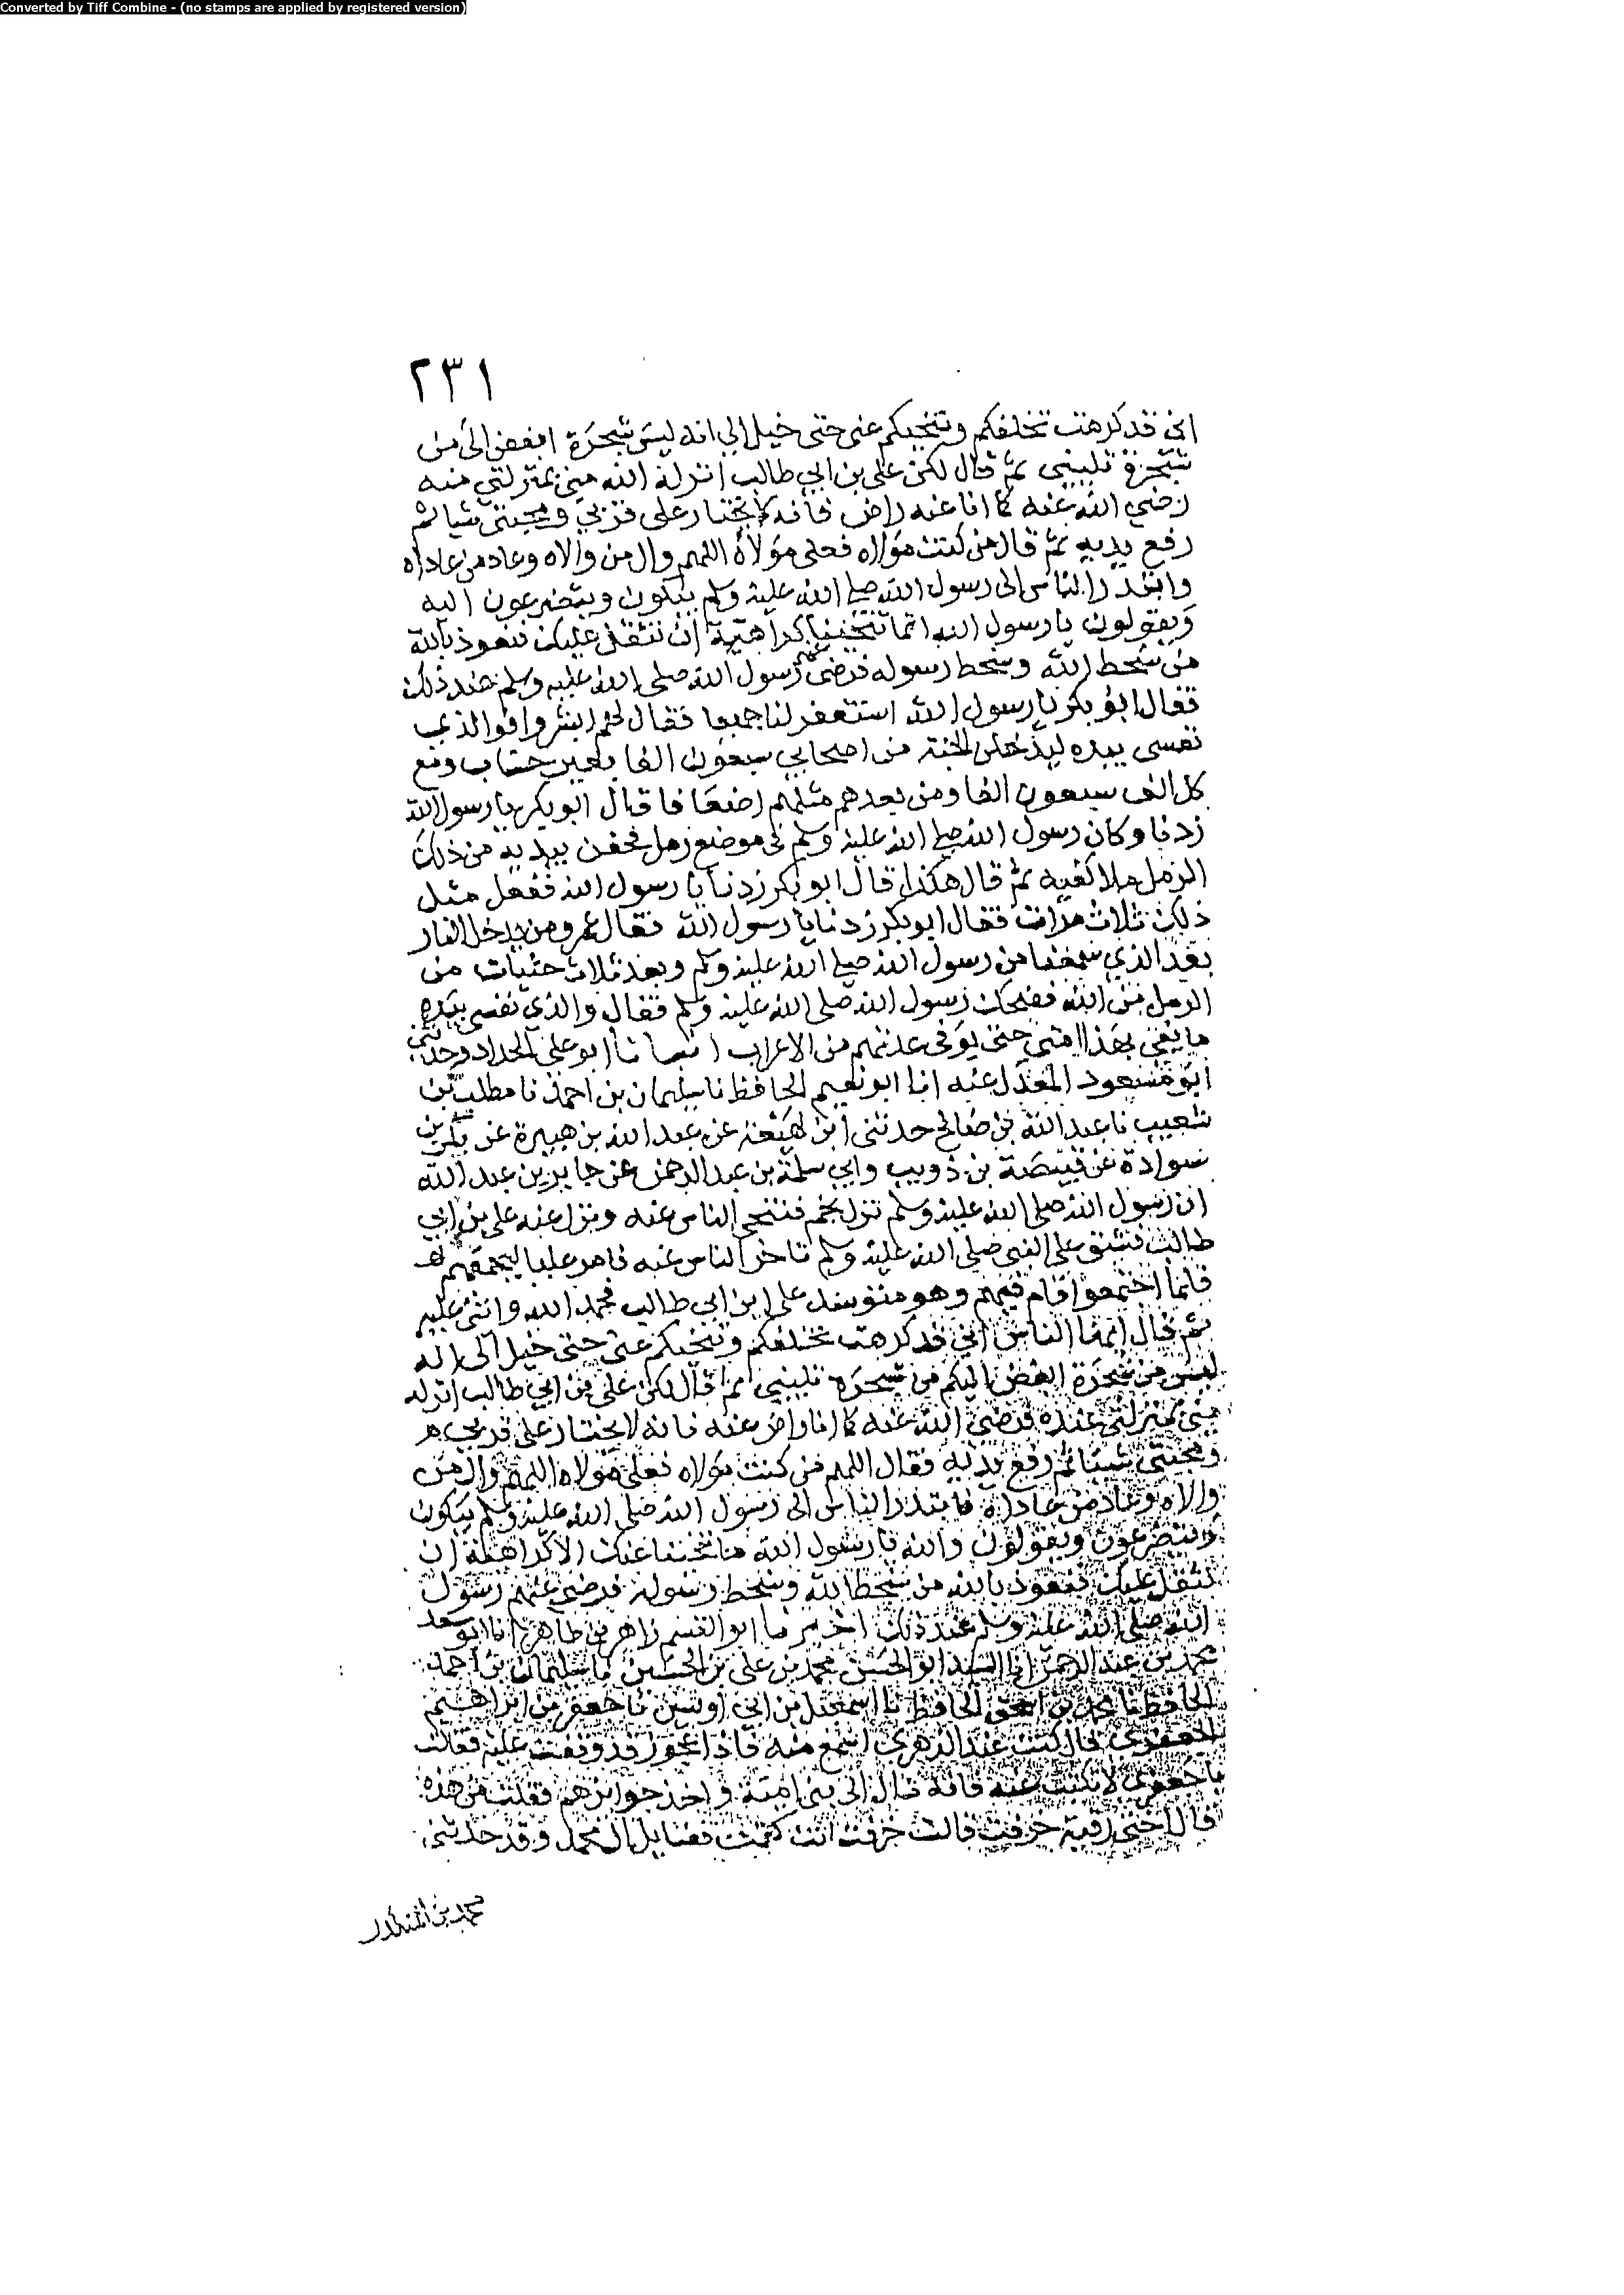 Converted by Tiff Combine - (no stamps are applied by registered version)
٢٣١
اني قد كرهت تخلفكم وتنحيكم عني حتى خيل الي انه ليس شجرة ابغض الى من
شجرة تليني ثم قال لكن علي بن ابي طالب انزله الله مني بمنزلتي منه
رضي الله عنه كما انا عنه راض فانه لا يختار على قربي ومحبتي شيا ثم
رفع يديه ثم قال من كنت مولاه فعلى مولاه اللهم وال من والاه وعاد من عاداه
وابتدر الناس الى رسول الله صلى الله عليه وسلم يبكون ويتضرعون اليه
ويقولون يا رسول الله انما تنحينا كراهية ان نثقل عليك فنعوذ بالله
من سخط الله وسخط رسوله فرضى عنهم رسول الله صلى الله عليه وسلم عند ذلك
فقال ابو بكر يا رسول الله استغفر لنا جميعا فقال لهم ابشروا فوالذي
نفسى بيده ليدخلن الجنة من اصحابي سبعون الفا بغير حساب ومع
كل الف سبعون الفا ومن بعدهم مثلهم اضعافا قال ابو بكر يا رسول الله
زدنا وكان رسول الله صلى الله عليه وسلم في موضع رمل فحفن بيديه من ذلك
الرمل ملا كفيه ثم قال هكذا قال ابو بكر زدنا يا رسول الله ففعل مثل
ذلك ثلاث مرات فقال ابو بكر زدنا يا رسول الله فقال عمر ومن يدخل النار
بعد الذي سمعنا من رسول الله صلى الله عليه وسلم وبعد ثلاث حثيات من
الرمل من الله فضحك رسول الله صلى الله عليه وسلم فقال والذي نفسي بيده
ما يفي بهذا امتي حتى يوفى عدتهم من الاعراب انبانا ابو علي الحداد وحدثني
ابو مسعود المعدل عنه انا ابو نعيم الحافظ نا سليمان بن احمد نا مطلب بن
شعيب نا عبد الله بن صالح حدثني ابن لهيعة عن عبد الله بن هبيرة عن بكر بن
سوادة عن قبيصة بن ذويب وابي سلمة بن عبد الرحمن عن جابر بن عبد الله
ان رسول الله صلى الله عليه وسلم نزل بخم فتنحى الناس عنه ونزل عنه علي بن ابي
طالب فشق على النبي صلى الله عليه وسلم تاخر الناس عنه فامر عليا ليجمعهم
فلما اجتمعوا قام فيهم وهو متوسد على ابن ابي طالب فحمد الله واثنى عليه
ثم قال ايها الناس اني قد كرهت تخلفكم وتنحيكم عني حتى خيل الى انه
ليس من شجرة ابغض اليكم من شجرة تليني ثم قال لكن علي بن ابي طالب انزله
مني بمنزلتي عنده فرضي الله عنه كما انا راض عنه فانه لا يختار على قربي
ومحبتي شيئا ثم رفع يديه فقال اللهم من كنت مولاه فعلي مولاه اللهم وال من
والاه وعاد من عاداه فابتدر الناس الى رسول الله صلى الله عليه وسلم يبكون
ويتضرعون ويقولون والله يا رسول الله ما تنحينا عنك الا كراهية ان
نثقل عليك فنعوذ بالله من سخط الله وسخط رسوله فرضي عنهم رسول
الله صلى الله عليه وسلم عند ذلك اخبرنا ابو القسم زاهر بن طاهر انا ابو سعد
محمد بن عبد الرحمن انا السيد ابو الحسن محمد بن علي بن الحسين نا سليمان بن احمد
الحافظ نا محمد بن اسحق الحافظ نا اسمعيل بن ابي اويس نا جعفر بن ابراهيم
الجعفري قال كنت عند الزهري اسمع منه فاذا عجوز قد وقفت عليه فقالت
يا جعفري لا تكتب عنه فانه مال الى بني امية واخذ جوائزهم فقلت من هذه
قال اختي رقية خرفت قالت خرفت انت كتمت فضايل ال محمد وقد حدثني
محمد بن المنكدر